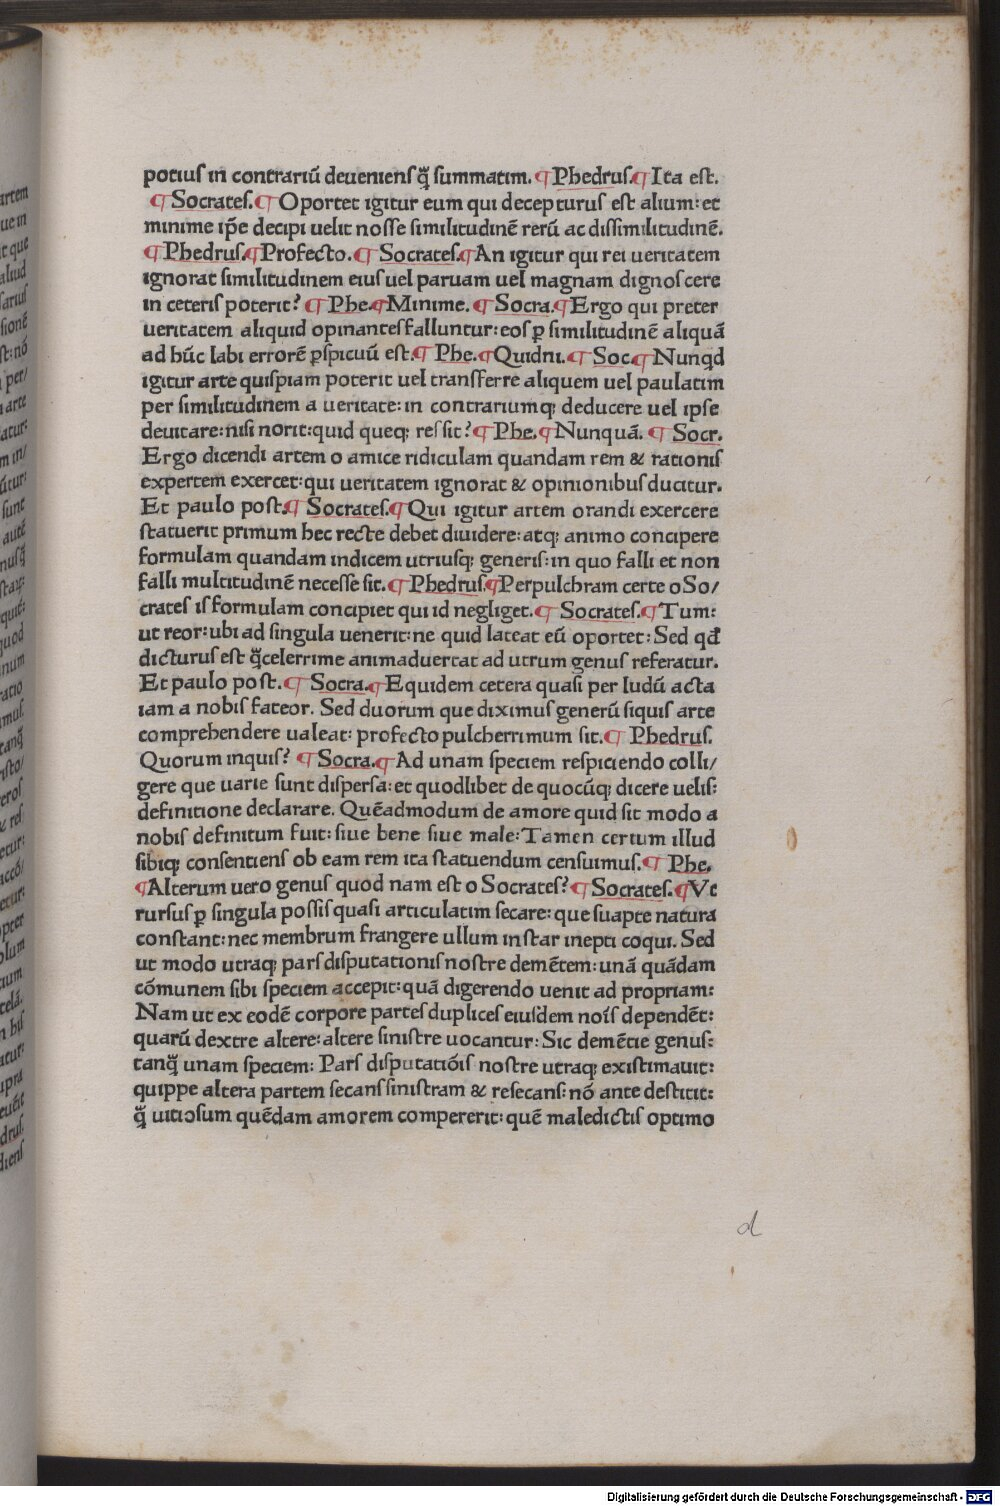 potius in contrariū deueniens q̄ summatim. ¶ Phedrus. ¶ Ita est.
¶ Socrates. ¶ Oportet igitur eum qui decepturus est alium: et
minime ip̄e decipi uelit nosse similitudinē rerū ac dissimilitudinē.
¶ Phedrus. ¶ Profecto. ¶ Socrates. ¶ An igitur qui rei ueritatem
ignorat similitudinem eius uel paruam uel magnam dignoscere
in ceteris poterit? ¶ Phe. ¶ Minime. ¶ Socra. ¶ Ergo qui preter
ueritatem aliquid opinantes falluntur: eos ꝑ similitudinē aliquā
ad hūc labi errorē ꝑspicuū est. ¶ Phe. ¶ Quidni. ¶ Soc. ¶ Nunqd
igitur arte quispiam poterit uel transferre aliquem uel paulatim
per similitudinem a ueritate: in contrariumq; deducere uel ipse
deuitare: nisi norit: quid queq; res sit? ¶ Phe. ¶ Nunquā. ¶ Socr.
Ergo dicendi artem o amice ridiculam quandam rem & rationis
expertem exercet: qui ueritatem ignorat & opinionibus ducitur.
Et paulo post. ¶ Socrates. ¶ Qui igitur artem orandi exercere
statuerit primum hec recte debet diuidere: atq; animo concipere
formulam quandam indicem utriusq; generis: in quo falli et non
falli multitudinē necesse sit. ¶ Phedrus. ¶ Perpulchram certe o So/
crates is formulam concipiet qui id negliget. ¶ Socrates. ¶ Tum:
ut reor: ubi ad singula uenerit: ne quid lateat eū oportet: Sed qd̄
dicturus est q̄celerrime animaduertat ad utrum genus referatur.
Et paulo post. ¶ Socra. ¶ Equidem cetera quasi per ludū acta
iam a nobis fateor. Sed duorum que diximus generū siquis arte
comprehendere ualeat: profecto pulcherrimum sit. ¶ Phedrus.
Quorum inquis? ¶ Socra. ¶ Ad unam speciem respiciendo colli/
gere que uarie sunt dispersa: et quodlibet de quocūq; dicere uelis:
definitione declarare. Quēadmodum de amore quid sit modo a
nobis definitum fuit: siue bene siue male: Tamen certum illud
sibiq; consentiens ob eam rem ita statuendum censuimus. ¶ Phe.
¶ Alterum uero genus quod nam est o Socrates? ¶ Socrates. ¶ Vt
rursus ꝑ singula possis quasi articulatim secare: que suapte natura
constant: nec membrum frangere ullum instar inepti coqui. Sed
ut modo utraq; pars disputationis nostre demētem: unā quādam
cōmunem sibi speciem accepit: quā digerendo uenit ad propriam:
Nam ut ex eodē corpore partes duplices eiusdem nois̄ dependēt:
quarū dextre altere: altere sinistre uocantur: Sic demētie genus:
tanq̄ unam speciem: Pars disputatiōis nostre utraq; existimauit:
quippe altera partem secans sinistram & resecans: nō ante destitit:
q̄ uitiosum quēdam amorem compererit: quē maledictis optimo
d
Digitalisierung gefördert durch die Deutsche Forschungsgemeinschaft - DFG